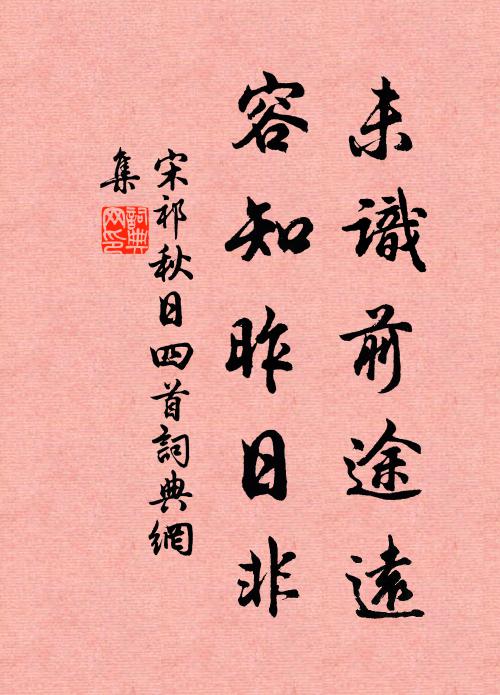 未識前途遠
容知昨日非
宋祁秋日四首詞典網
集
詞典
网印